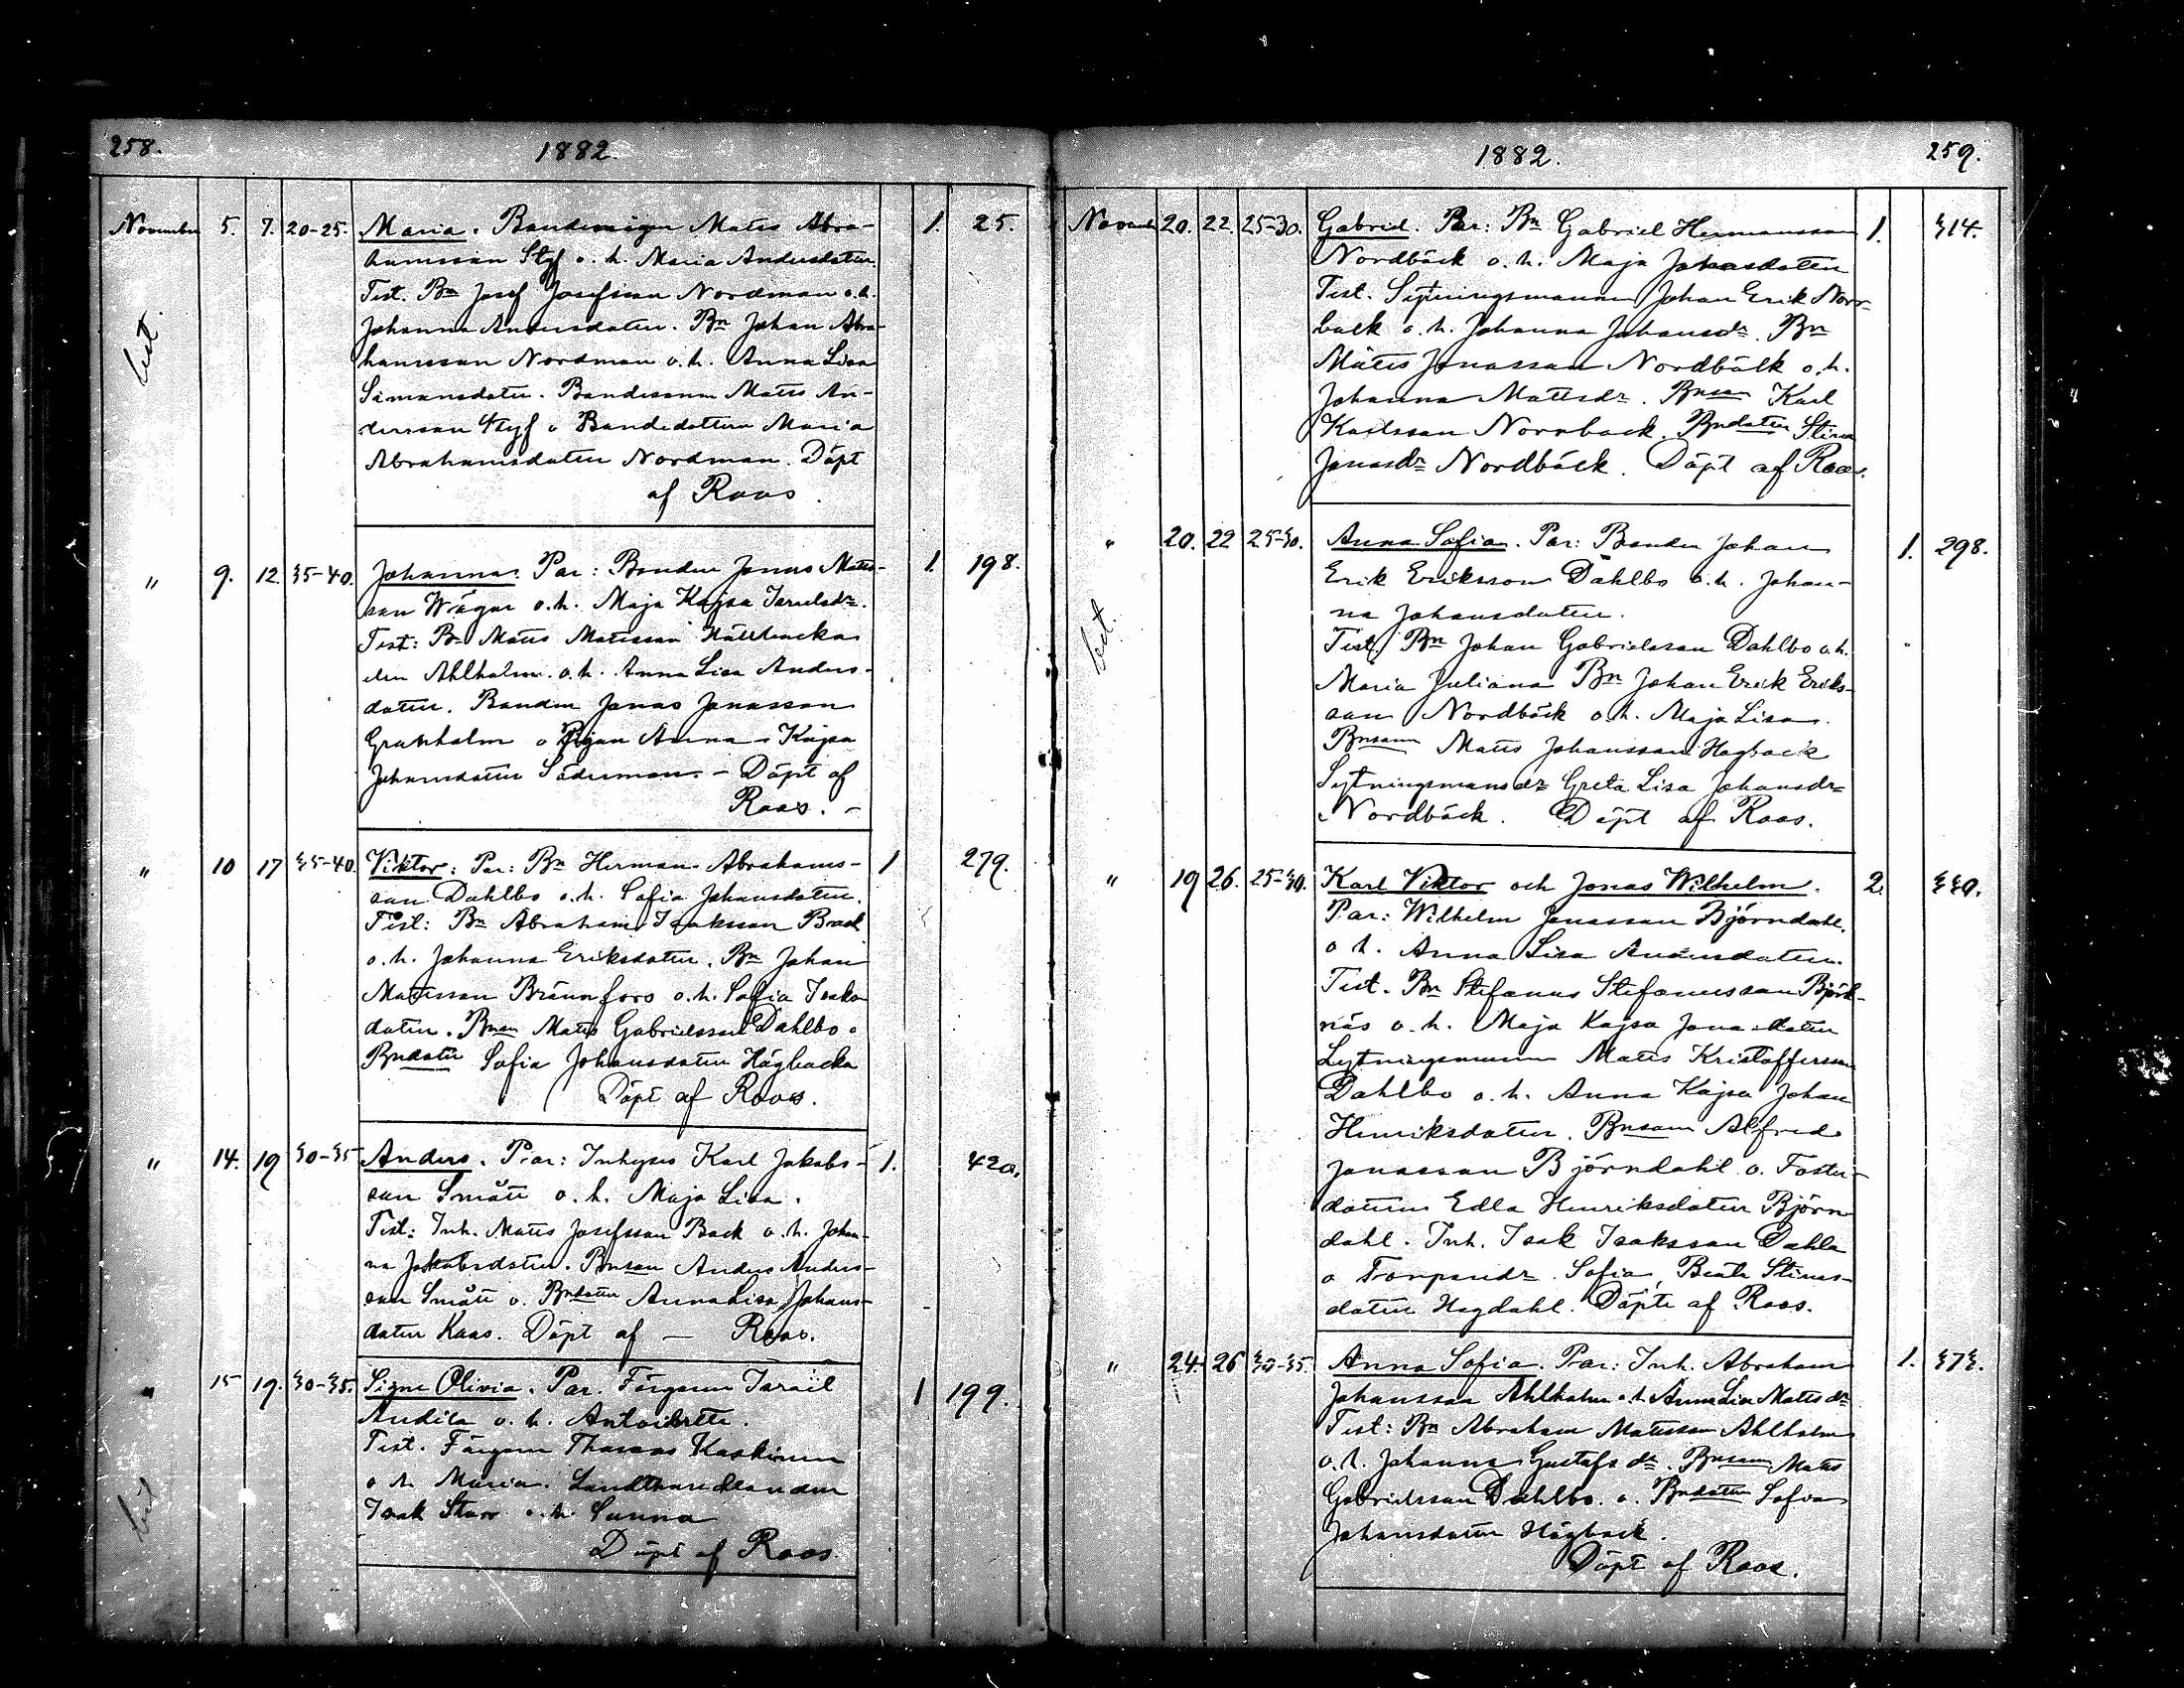 258. 1882.
November 5. 7. 20-25. Maria. Bondemågen Matts Abra- 1. 25.
hamsson Styf o. h. Maria Andersdotter.
Test. Bn Josef Josefsson Nordman o. h.
Johanna Andersdotter. Bn Johan Abra-
hamsson Nordman o. h. Anna Lisa
Simonsdotter. Bondesonen Matts An-
dersson Styf o Bondedottern Maria
Abrahamsdotter Nordman. Döpt
af Roos.
" 9. 12. 35-40. Johannes. Par: Bonden Jonas Matts- 1. 198.
son Wägar o. h. Maja Kajsa Israelsdr.
Test: Bn Matts Mattsson
Ahlholm o. h. Anna Lisa Anders-
dotter. Bonden Jonas Jonasson
Granholm o Pigan Anna Kajsa
Johansdotter Söderman. - Döpt af
Roos. -
" 10 17 35-40. Viktor: Par: Bn Herman Abrahams- 1 279.
son Dahlbo o. h. Sofia Johansdotter.
Test: Bn Abraham Isaksson Brad
o. h. Johanna Eriksdotter. Bn Johan
Mattsson Brännfors o. h. Sofia Isaks-
dotter. Bnson Matts Gabrielsson Dahlbo o
Bndotter Sofia Johansdotter Högbacka
Döpt af Roos.
" 14. 19 30-35 Anders. Par: Inhyses Karl Jakobs- 1. 420.
son Smått o. h. Maja Lisa.
Test: Inh. Matts Josefsson Back o. h. Johan-
na Jakobsdotter. Bnson Anders Anders-
son Smått o. Bndotter Anna Lisa Johans-
dotter Kaas. Döpt af - Roos.
" 15 19. 30-35. Signe Olivia. Par. Färgaren Israel 1 199.
Andila o. h. Antoinette.
Test. Färgaren Thomas Kaskinen
o h Maria. Landthandlanden
Isak Starr o. h. Sanna
Döpt af Roos.
1882. 259.
Novemb 20. 22. 25-30. Gabriel. Par: Bn Gabriel Hermansson 1. 314.
Nordbäck o. h. Maja Johansdotter
Test. Sytningsmannen Johan Erik Norr-
back o. h. Johanna Johansdr. Bn
Matts Jonasson Nordbäck o. h.
Johanna Mattsdr. Bnson Karl
Karlsson Norrback. Bndotter Stina
Jonasdr Nordbäck. Döpt af Roos.
" 20. 22 25-30. Anna Sofia. Par: Bonden Johan 1. 298.
Erik Eriksson Dahlbo o. h. Johan-
na Johansdotter.
Test. Bn Johan Gabrielsson Dahlbo o. h.
Maria Juliana Bn Johan Erik Eriks-
son Nordbäck o. h. Maja Lisa.
Bnsonen Matts Johansson Hagback
Sytningsmansdr Greta Lisa Johansdr
Nordbäck. Döpt af Roos.
" 19 26. 25-30. Karl Viktor och Jonas Wilhelm. 2. 330.
Par: Wilhelm Jonasson Björndahl.
o h. Anna Lisa Andersdotter.
Test. Bn Stefanus Stefanusson Björk-
näs o. h. Maja Kajsa Jonasdotter
Sytningsmannen Matts Kristoffersson
Dahlbo o. h. Anna Kajsa Johan
Henriksdotter. Bnsonen Alfred
Jonasson Björndahl o. Foster-
dottern Edla Henriksdotter Björn
dahl. Inh. Isak Isaksson Dahla
o Torparedr. Sofia Beata Stinas-
dotter Hagdahl. Döpte af Roos.
" 24. 26 30-35. Anna Sofia. Par: Inh. Abraham 1. 373.
Johansson Ahlholm o. h Anna Lisa Mattsdr
Test: Bn Abraham Mattsson Ahlholm
o. h. Johanna Gustafsdr. Bnsonen Matts
Gabrielsson Dahlbo. o. Bndotter Sofia
Johansdotter Högback.
Döpt af Roos.